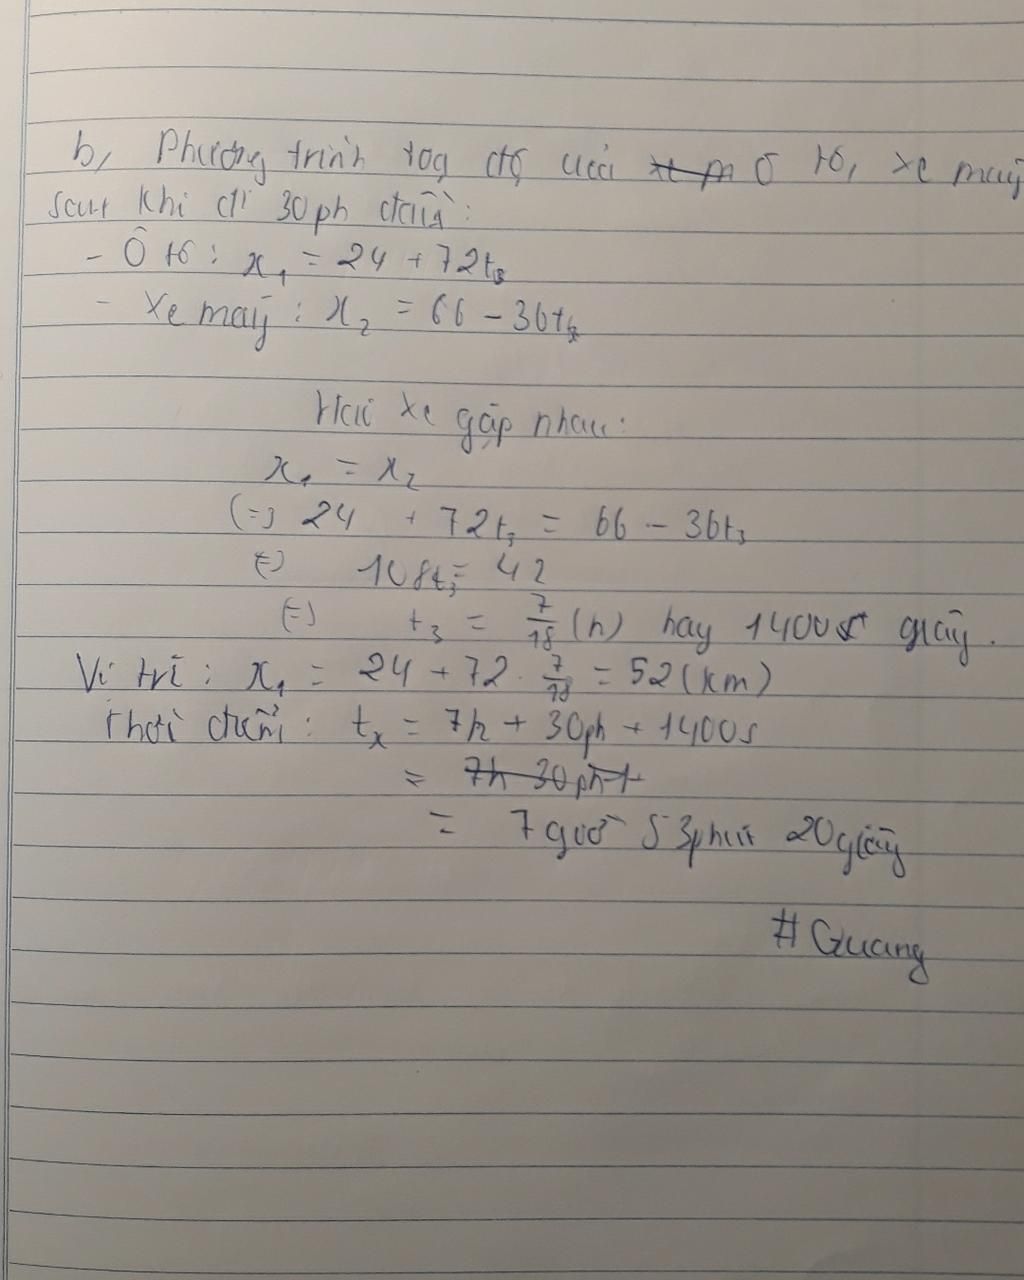 b, Phương trình toạ độ của xe m ô tô, xe máy
sau khi đi 30ph đầu:
- Ô tô: x₁ = 24 + 72t₃
- Xe máy: x₂ = 66 - 36t₃
Hai xe gặp nhau:
x₁ = x₂
(=) 24 + 72t₃ = 66 - 36t₃
(=) 108t₃ = 42
(=) t₃ = 7/18 (h) hay 1400 giây.
Vị trí: x₁ = 24 + 72 . 7/18 = 52 (km)
Thời điểm: tₓ = 7h + 30ph + 1400s
= 7h 30ph +
= 7 giờ 53phút 20giây
# Quang